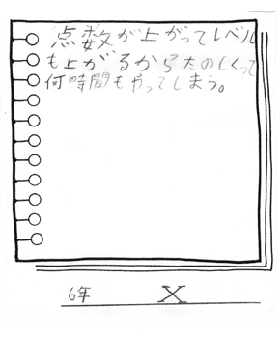 点数が上がってレベル
も上がるからたのしくって
何時間もやってしまう。
6年 X